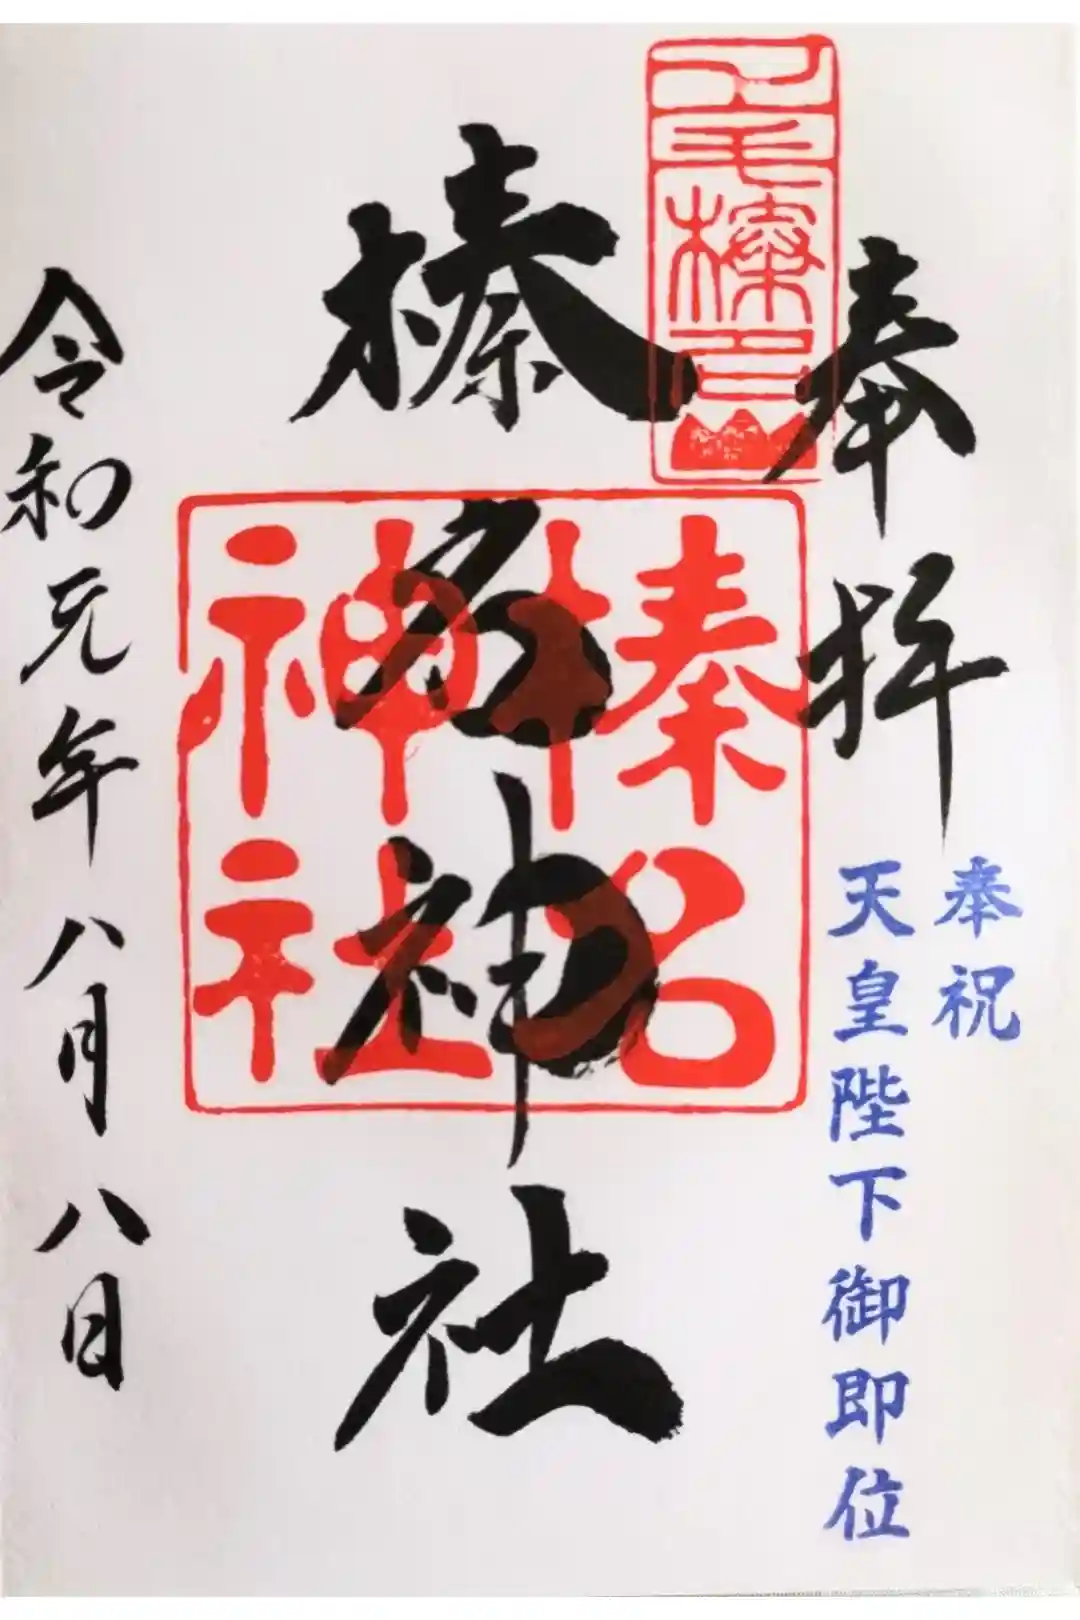 奉拝
奉祝
天皇陛下御即位
榛名神社
榛名
神社
令和元年八月八日